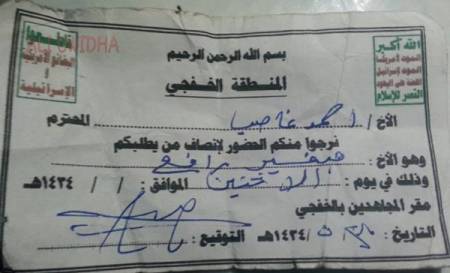 الله أكبر
الموت لأمريكا
الموت لإسرائيل
اللعنة على اليهود
النصر للإسلام
قاطعوا
البضائع الأمريكية
و
الإسرائيلية
بسم الله الرحمن الرحيم
المنطقة الغفجي
الأخ / احمد المحترم
نرجوا منكم الحضور لإنصاف من يطلبكم
وهو الأخ :
وذلك في يوم : الاثنين الموافق : / / ١٤٣٤هـ
مقر المجاهدين بالخفجي
التاريخ : / ٥ / ١٤٣٤هـ التوقيع :